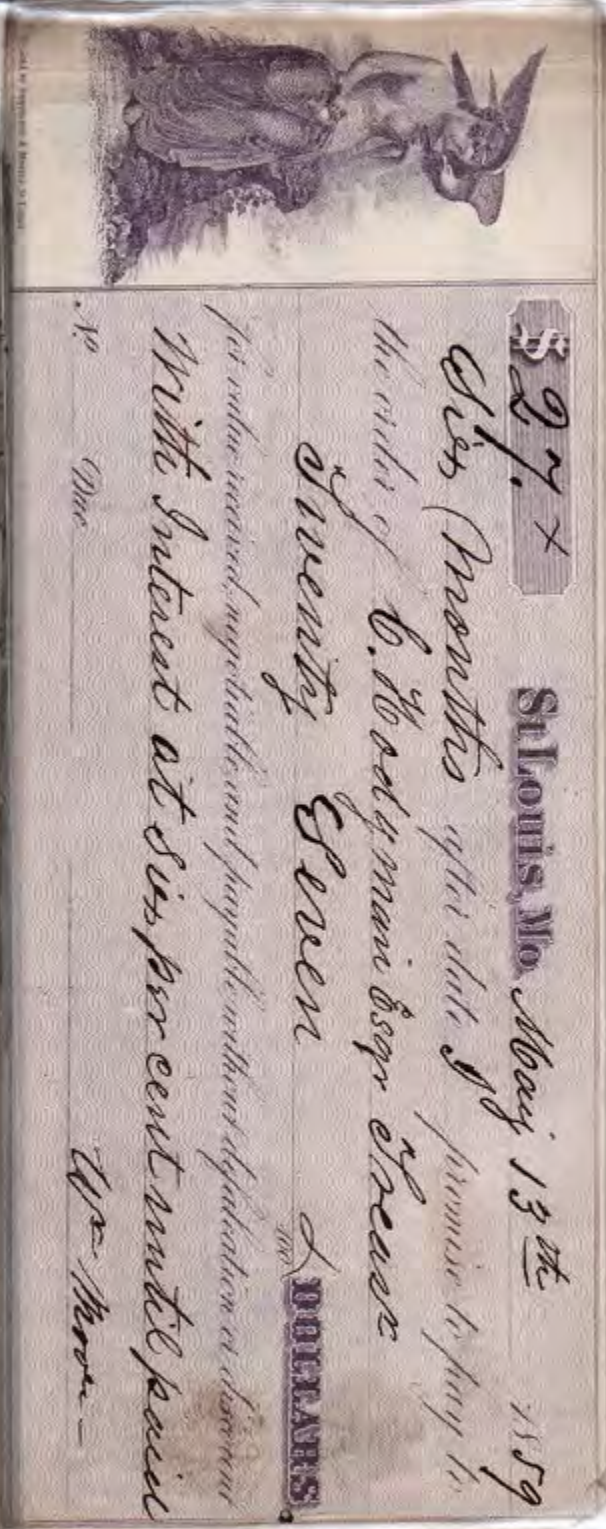 $ 27. x St Louis, Mo. May 13th 1859
Six Months after date I promise to pay to
the order of C. Hodgman Esqr Treasr
Twenty Seven /100 DOLLARS
for value received, negotiable and payable without defalcation or discount
With Interest at Six per cent until paid
No. Due Wm Moore